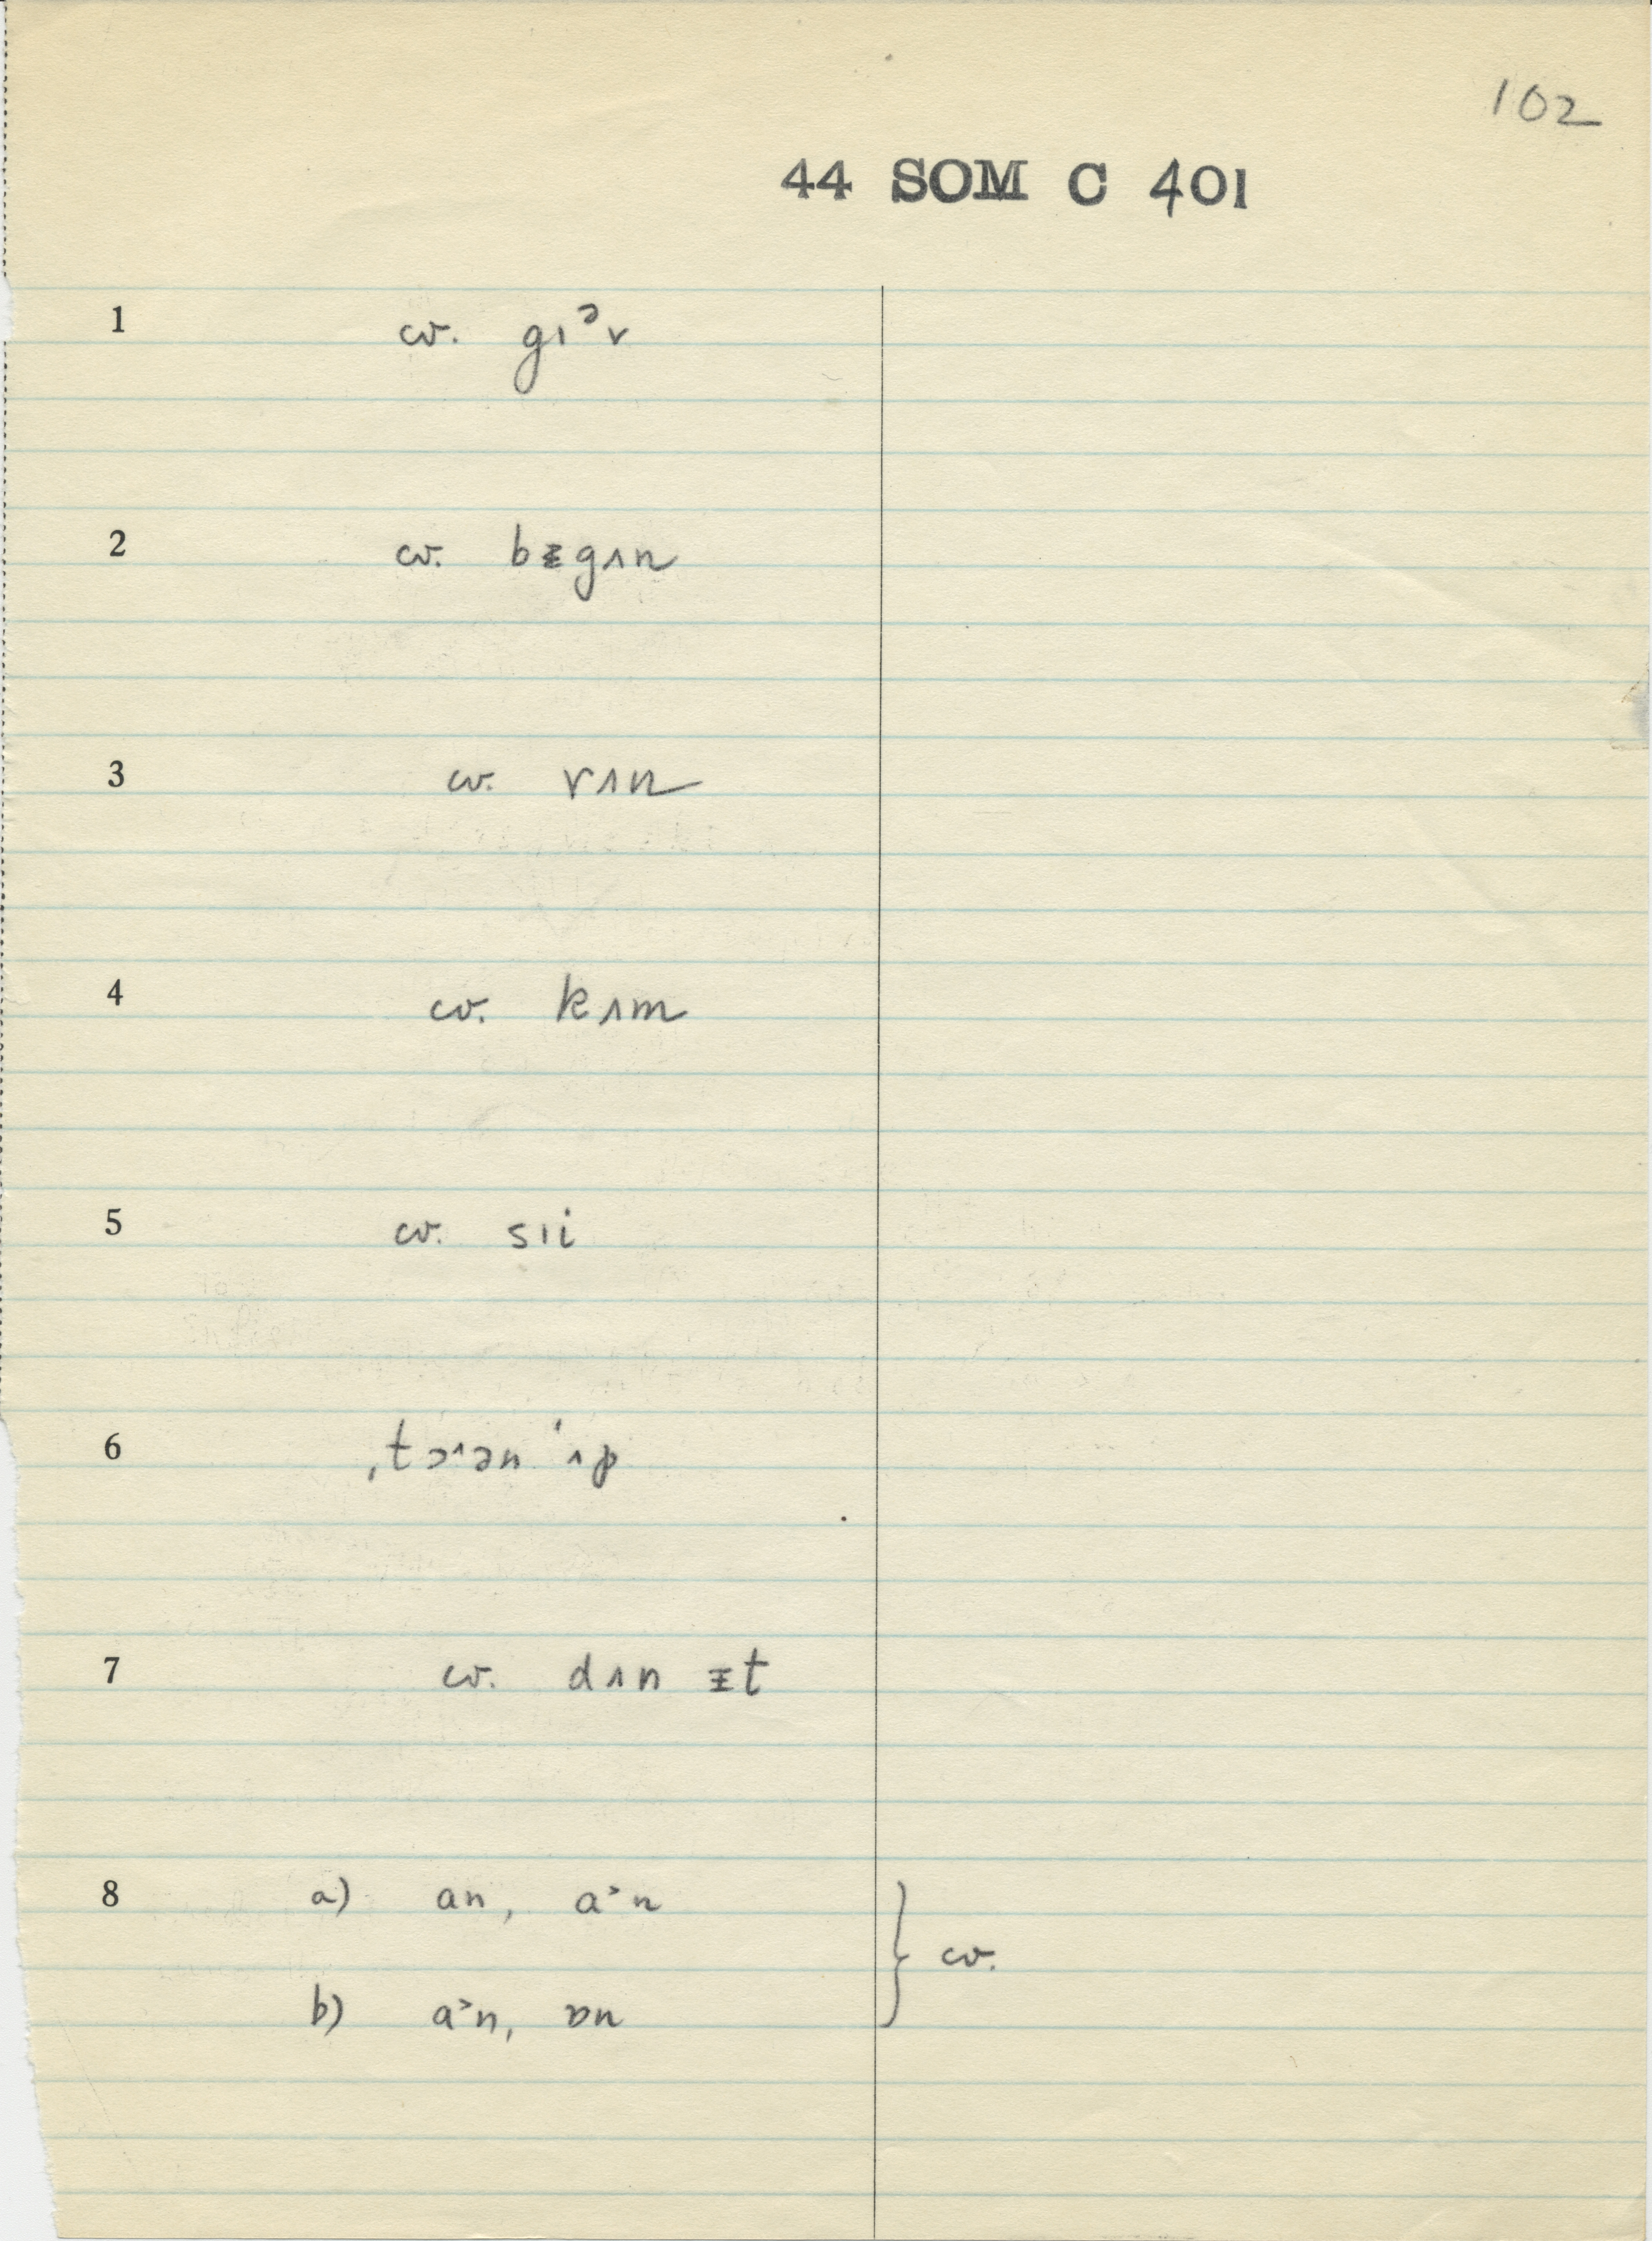 102
44 SOM C 401
1 cv. gɪᵊv
2 cv. bᵻgʌn
3 cv. rʌn
4 cv. kʌm
5 cv. sɪi
6 ˌtɔˑən ˈʌp
7 cv. dʌn ᵻt
8 a) an, a˃n } cv.
b) a˃n, ɒn